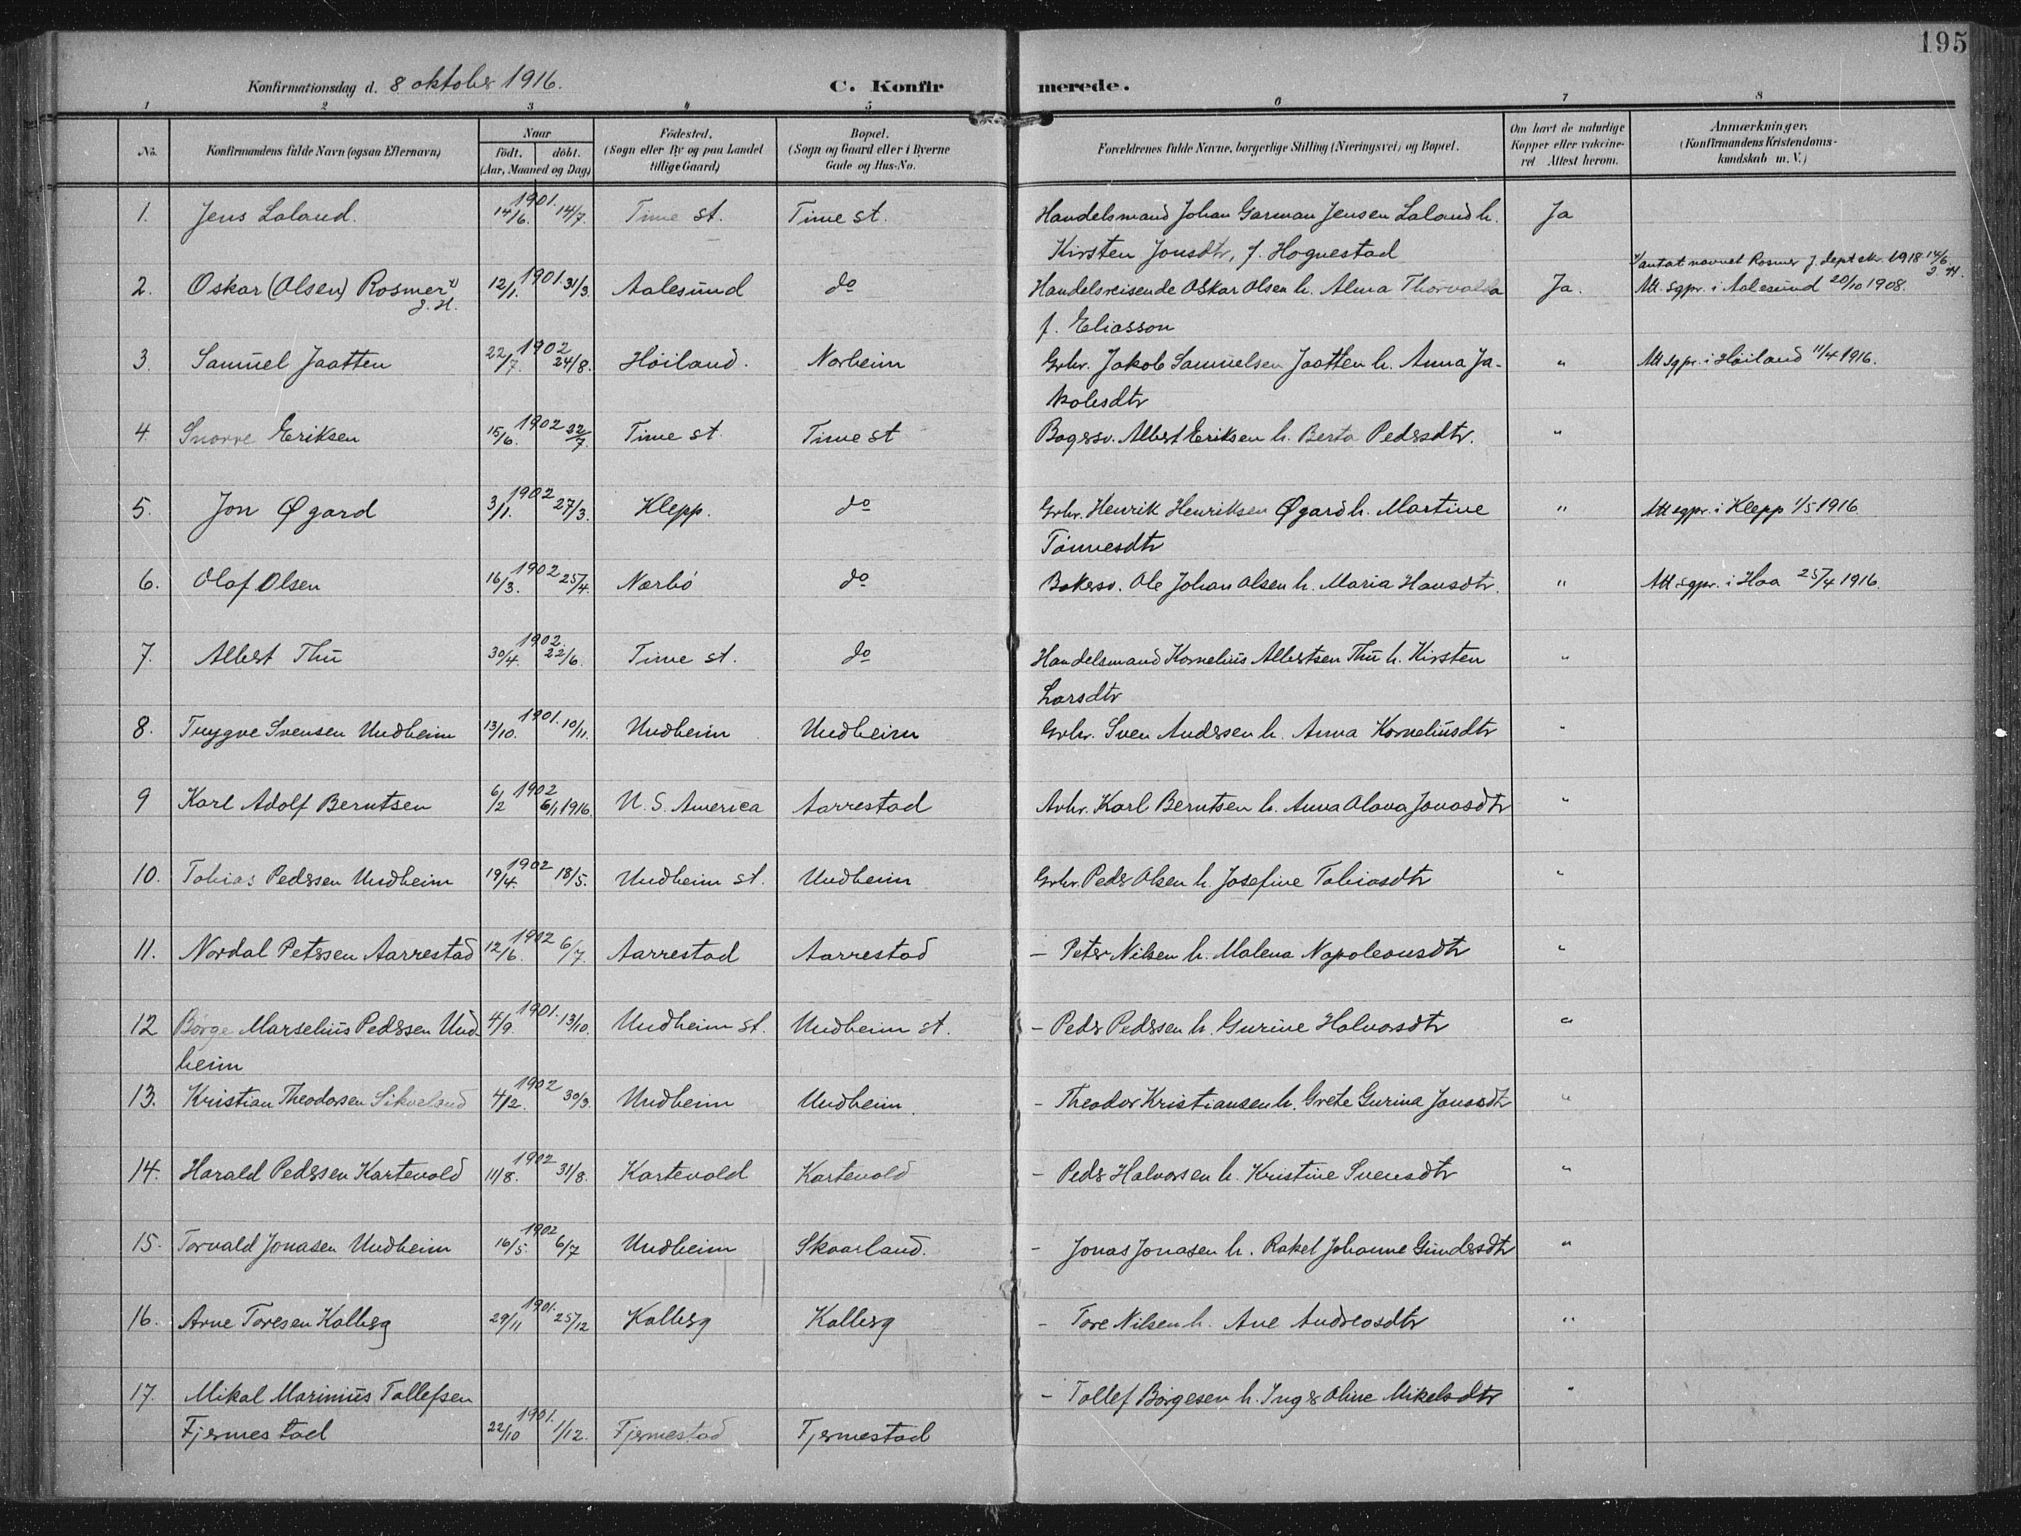 195
Konfirmationsdag d. 8 oktober 1916. C. Konfirmerede.
1 2 3 4 5 6 7 8
No. Konfirmandens fulde Navn (ogsaa Efternavn) Naar født. døbt. (Aar, Maaned og Dag) Fødested. (Sogn eller By og paa Landet tillige Gaard) Bopæl. (Sogn og Gaard eller i Byerne Gade og Hus-No. Forældrenes fulde Navne, borgerlige Stilling (Næringsvei) og Bopæl. Om havt de naturlige Kopper eller vakcineret Attest herom. Anmærkninger. (Konfirmandens Kristendomskundskab m. V.)
1. Jens Laland. 1901. 14/6. 14/7. Time st. Time st. Handelsmand Johan Garman Jensen Laland h. Ja
Kirsten Jonsdtr, f. Hognestad
1) antat navnet Rosmer J. dept skr. 1918 14/6 J. H.
2. Oskar (Olsen) Rosmer 1) 1901. 12/1. 31/3. Aalesund do Handelsreisende Oskar Olsen h. Alma Thorvalda Ja. Att. sgpr. i Aalesund 20/10 1908.
J. H. f. Eliasson
3. Samuel Jaatten 1902 22/7. 24/8. Høiland. Norheim Grbr. Jakob Samuelsen Jaatten h. Anna Ja- " Att sgpr. i Høiland 11/4 1916.
kobsdtr
4. Snorre Eriksen 1902 15/6. 22/7. Time st. Time st Bagersv. Albert Eriksen h. Berta Pedersdtr. "
5. Jon Øgard 1902 3/1. 27/3. Klepp. do Grbr. Henrik Henriksen Øgard h. Martine " Att sgpr. i Klepp 1/5 1916.
Tønnesdtr
6. Olaf Olsen 1902 16/3. 25/4. Nærbø do Bakersv. Ole Johan Olsen h. Maria Hansdtr. " Att sgpr. i Haa 25/4 1916.
7. Albert Thu 1902 30/4. 22/6. Time st. do Handelsmand Kornelius Albertsen Thu h. Kirsten "
Larsdtr
8. Trygve Svensen Undheim 1901. 13/10. 10/11. Undheim Undheim Grbr. Sven Anderssen h. Anna Korneliusdtr "
9 Karl Adolf Berntsen 1902 6/2 6/1 1916. U. S. America Aarrestad Arbr. Karl Berntsen h. Anna Olava Jonasdtr "
10. Tobias Pederssen Undheim 1902 19/4. 18/5. Undheim st. Undheim Grbr. Peder Olsen h. Josefine Tobiasdtr "
11. Nordal Peterssen Aarrestad 1902 12/6. 6/7. Aarrestad Aarrestad – Peter Nilsen h. Malena Napoleonsdtr "
12 Børge Marselius Pederssen Und 1901. 4/9. 13/10. Undheim st. Undheim st. – Peder Pederssen h. Gurine Halvorsdtr "
heim
13. Kristian Theodorsen Sikveland 1902 4/2. 30/3. Undheim Undheim. – Theodor Kristiansen h. Grete Gurina Jonasdtr "
14. Harald Pederssen Kartevold 1902 11/8. 31/8. Kartevold Kartevold – Peder Halvorsen h. Kristine Svensdtr "
15. Torvald Jonasen Undheim 1902 16/5. 6/7 Undheim Skaarland. – Jonas Jonasen h. Rakel Johanne Gundersdtr "
16. Arne Toresen Kalberg 1901. 29/11 25/12 Kalberg Kalberg – Tore Nilsen h. Ane Andreasdtr "
17. Mikal Marinius Tollefsen – Tollef Børgesen h. Inger Oline Mikelsdtr "
Fjermestad 1901. 22/10 1/12. Fjermestad Fjermestad